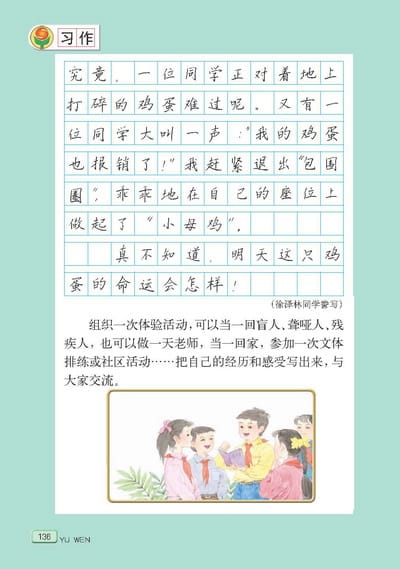 习作
究竟，一位同学正对着地上
打碎的鸡蛋难过呢。又有一
位同学大叫一声：“我的鸡蛋
也报销了！”我赶紧退出“包围
圈”，乖乖地在自己的座位上
做起了“小母鸡”。
真不知道，明天这只鸡
蛋的命运会怎样！
（徐泽林同学誊写）
组织一次体验活动，可以当一回盲人、聋哑人、残
疾人，也可以做一天老师，当一回家，参加一次文体
排练或社区活动……把自己的经历和感受写出来，与
大家交流。
136
YU WEN